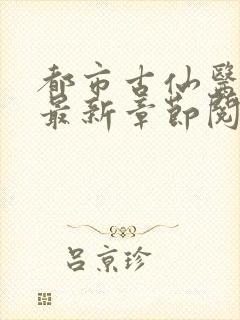 都市古仙醫
最新章節閱
吕京珍